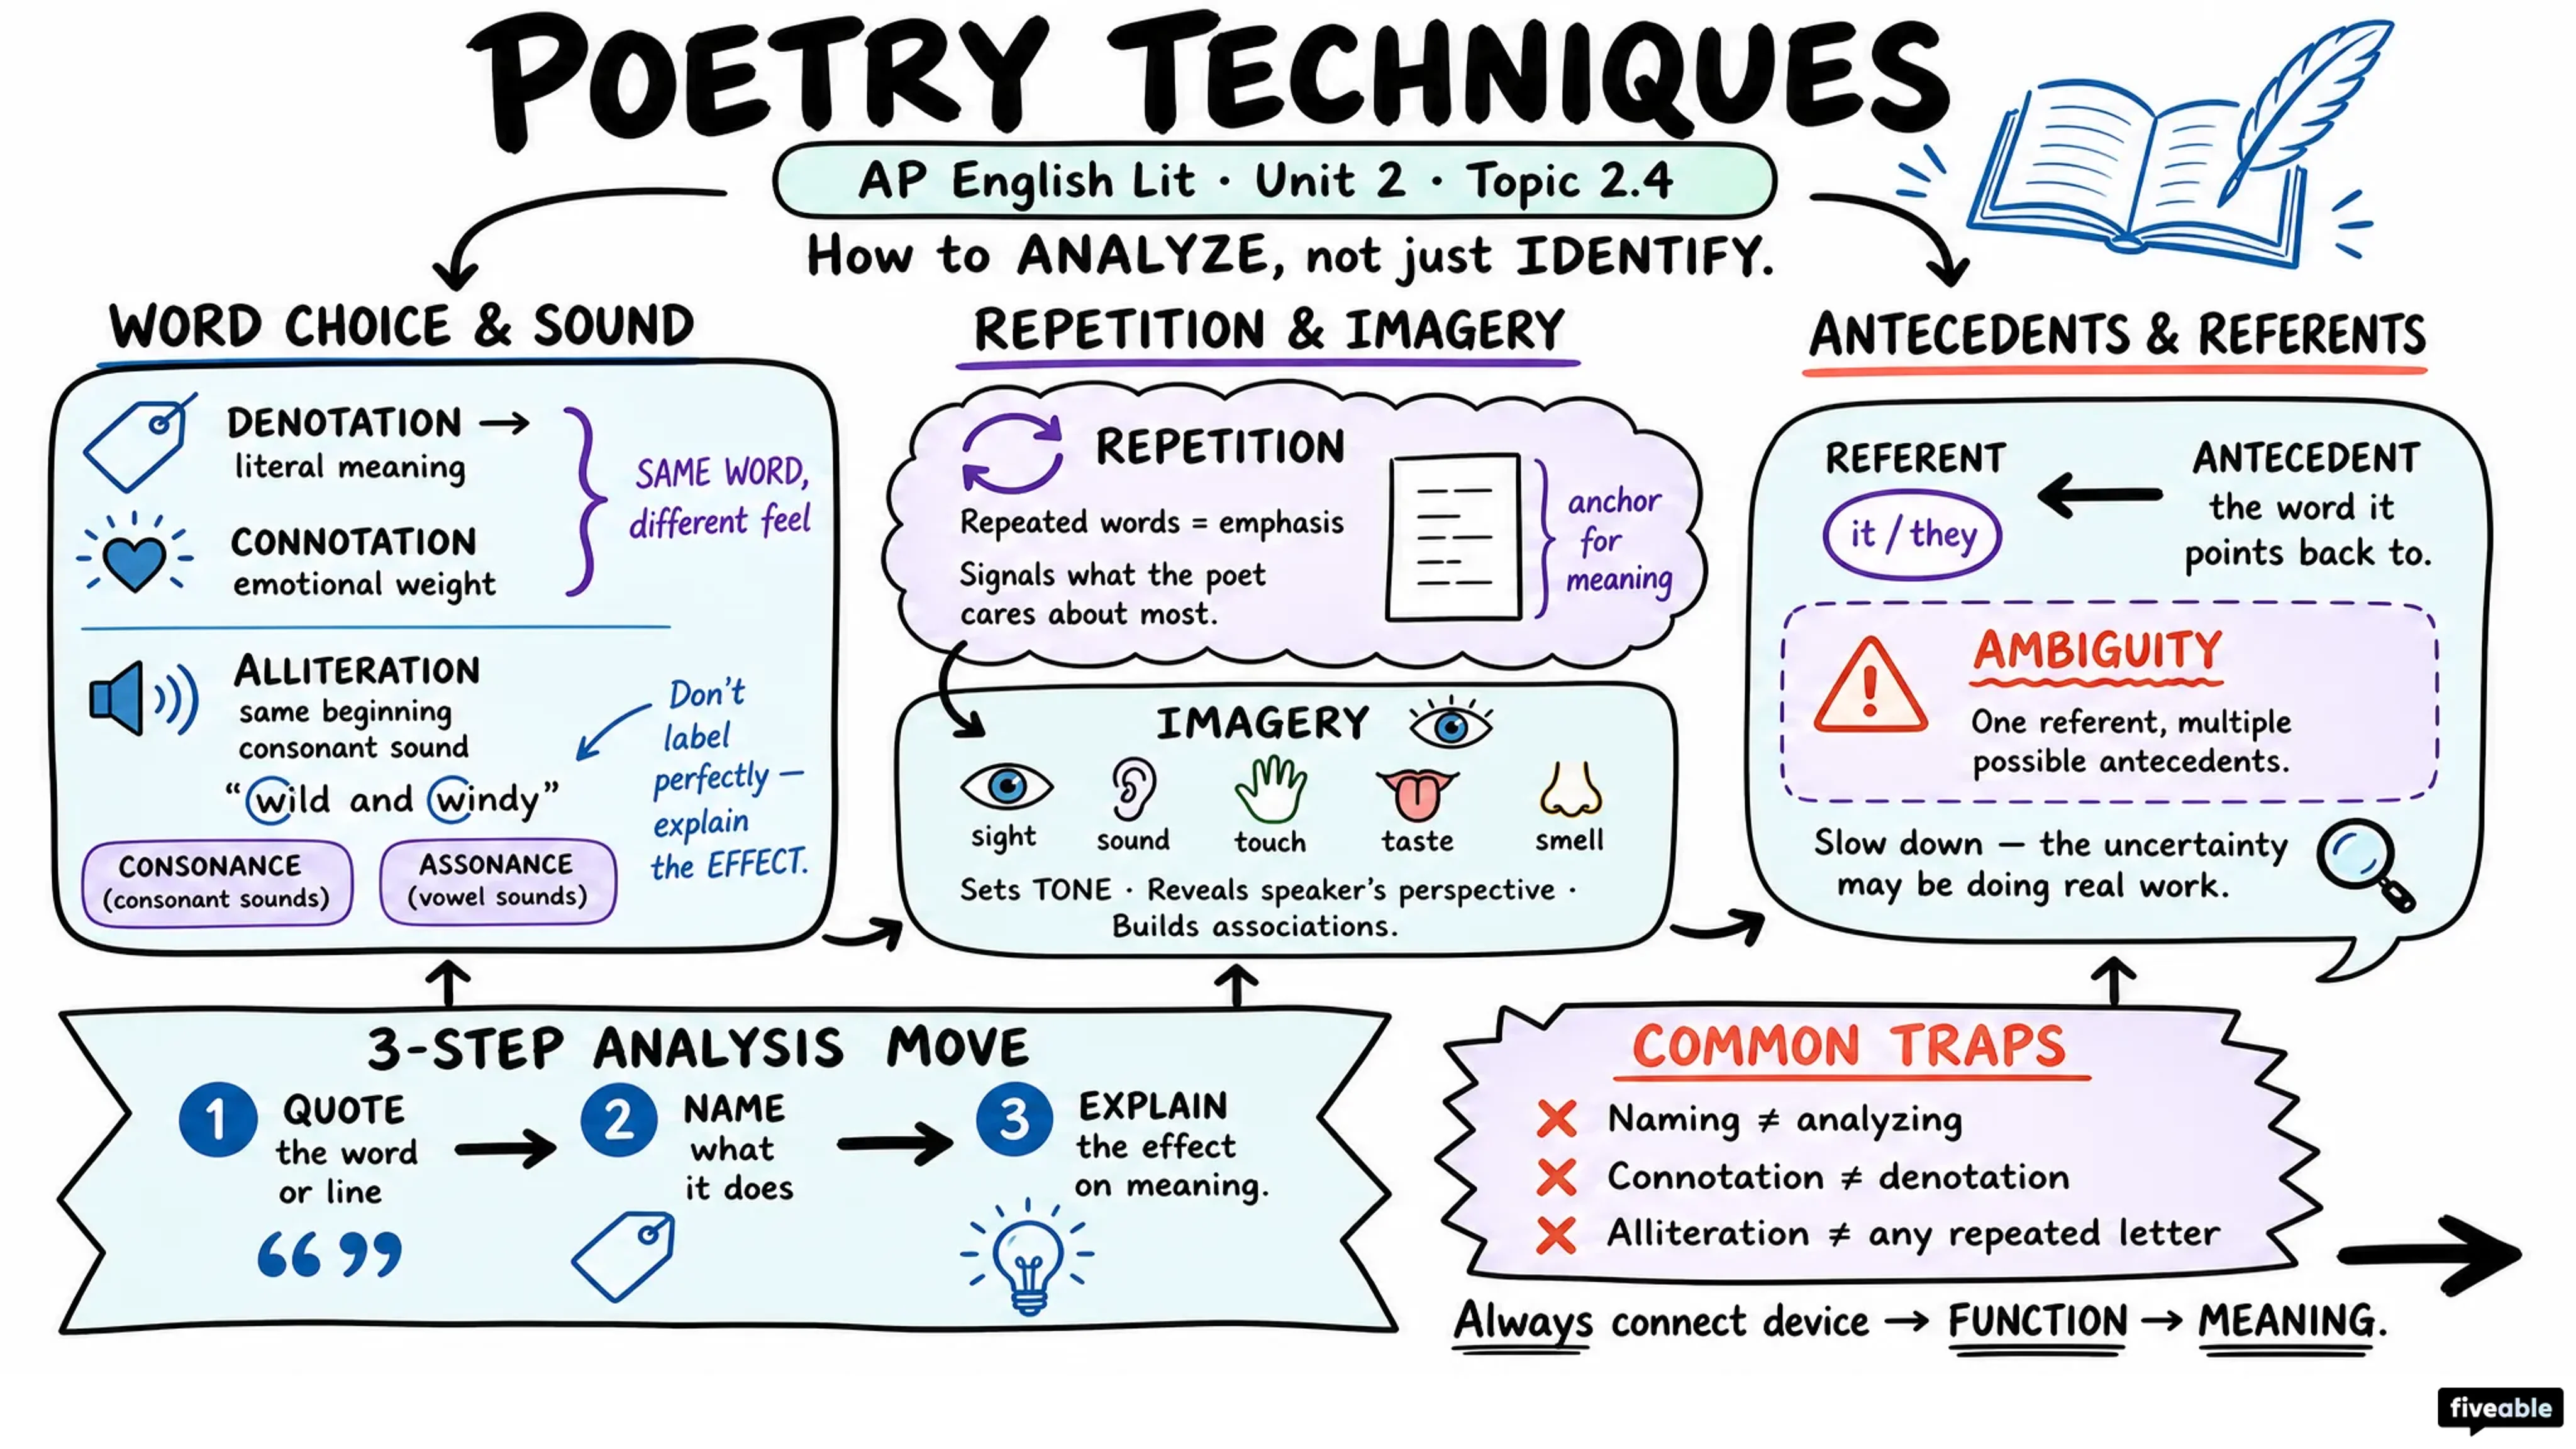 POETRY TECHNIQUES
AP English Lit · Unit 2 · Topic 2.4
How to ANALYZE, not just IDENTIFY.
WORD CHOICE & SOUND
DENOTATION →
literal meaning
CONNOTATION
emotional weight
SAME WORD,
different feel
ALLITERATION
same beginning
consonant sound
“wild and windy”
Don't
label
perfectly —
explain
the EFFECT.
CONSONANCE
(consonant sounds)
ASSONANCE
(vowel sounds)
REPETITION & IMAGERY
REPETITION
Repeated words = emphasis
Signals what the poet
cares about most.
anchor
for
meaning
IMAGERY
sight
sound
touch
taste
smell
Sets TONE · Reveals speaker's perspective ·
Builds associations.
ANTECEDENTS & REFERENTS
REFERENT
it / they
ANTECEDENT
the word it
points back to.
AMBIGUITY
One referent, multiple
possible antecedents.
Slow down — the uncertainty
may be doing real work.
3-STEP ANALYSIS MOVE
1 QUOTE
the word
or line
2 NAME
what
it does
3 EXPLAIN
the effect
on meaning.
COMMON TRAPS
Naming ≠ analyzing
Connotation ≠ denotation
Alliteration ≠ any repeated letter
Always connect device → FUNCTION → MEANING.
fiveable